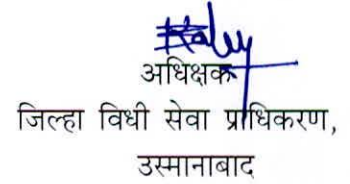 अधिक्षक
जिल्हा विधी सेवा प्राधिकरण,
उस्मानाबाद